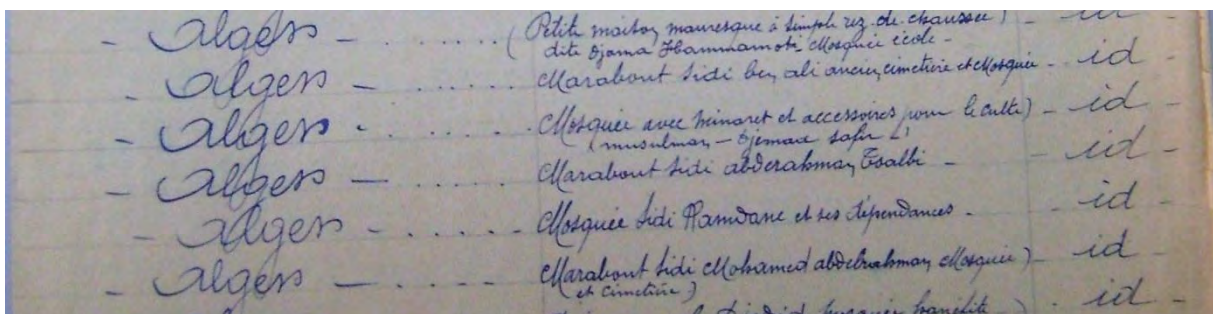 - Alger - ...... (Petite maison mauresque à simple rez-de-chaussée) - id -
dite Djama Hammamoti Mosquée école -
- Alger - ...... Marabout Sidi ben ali ancien cimetière et Mosquée - id -
- Alger - ...... Mosquée avec minaret et accessoires pour le culte) - id -
(musulman - Djemaa safir
- Alger - ...... Marabout Sidi abderahman Tsalbi - - id -
- Alger - ...... Mosquée Sidi Ramdane et ses dépendances - - id -
- Alger - ...... Marabout Sidi Mohamed abdelrahman Mosquée) - id -
et cimetière)
hanéfite) - id -